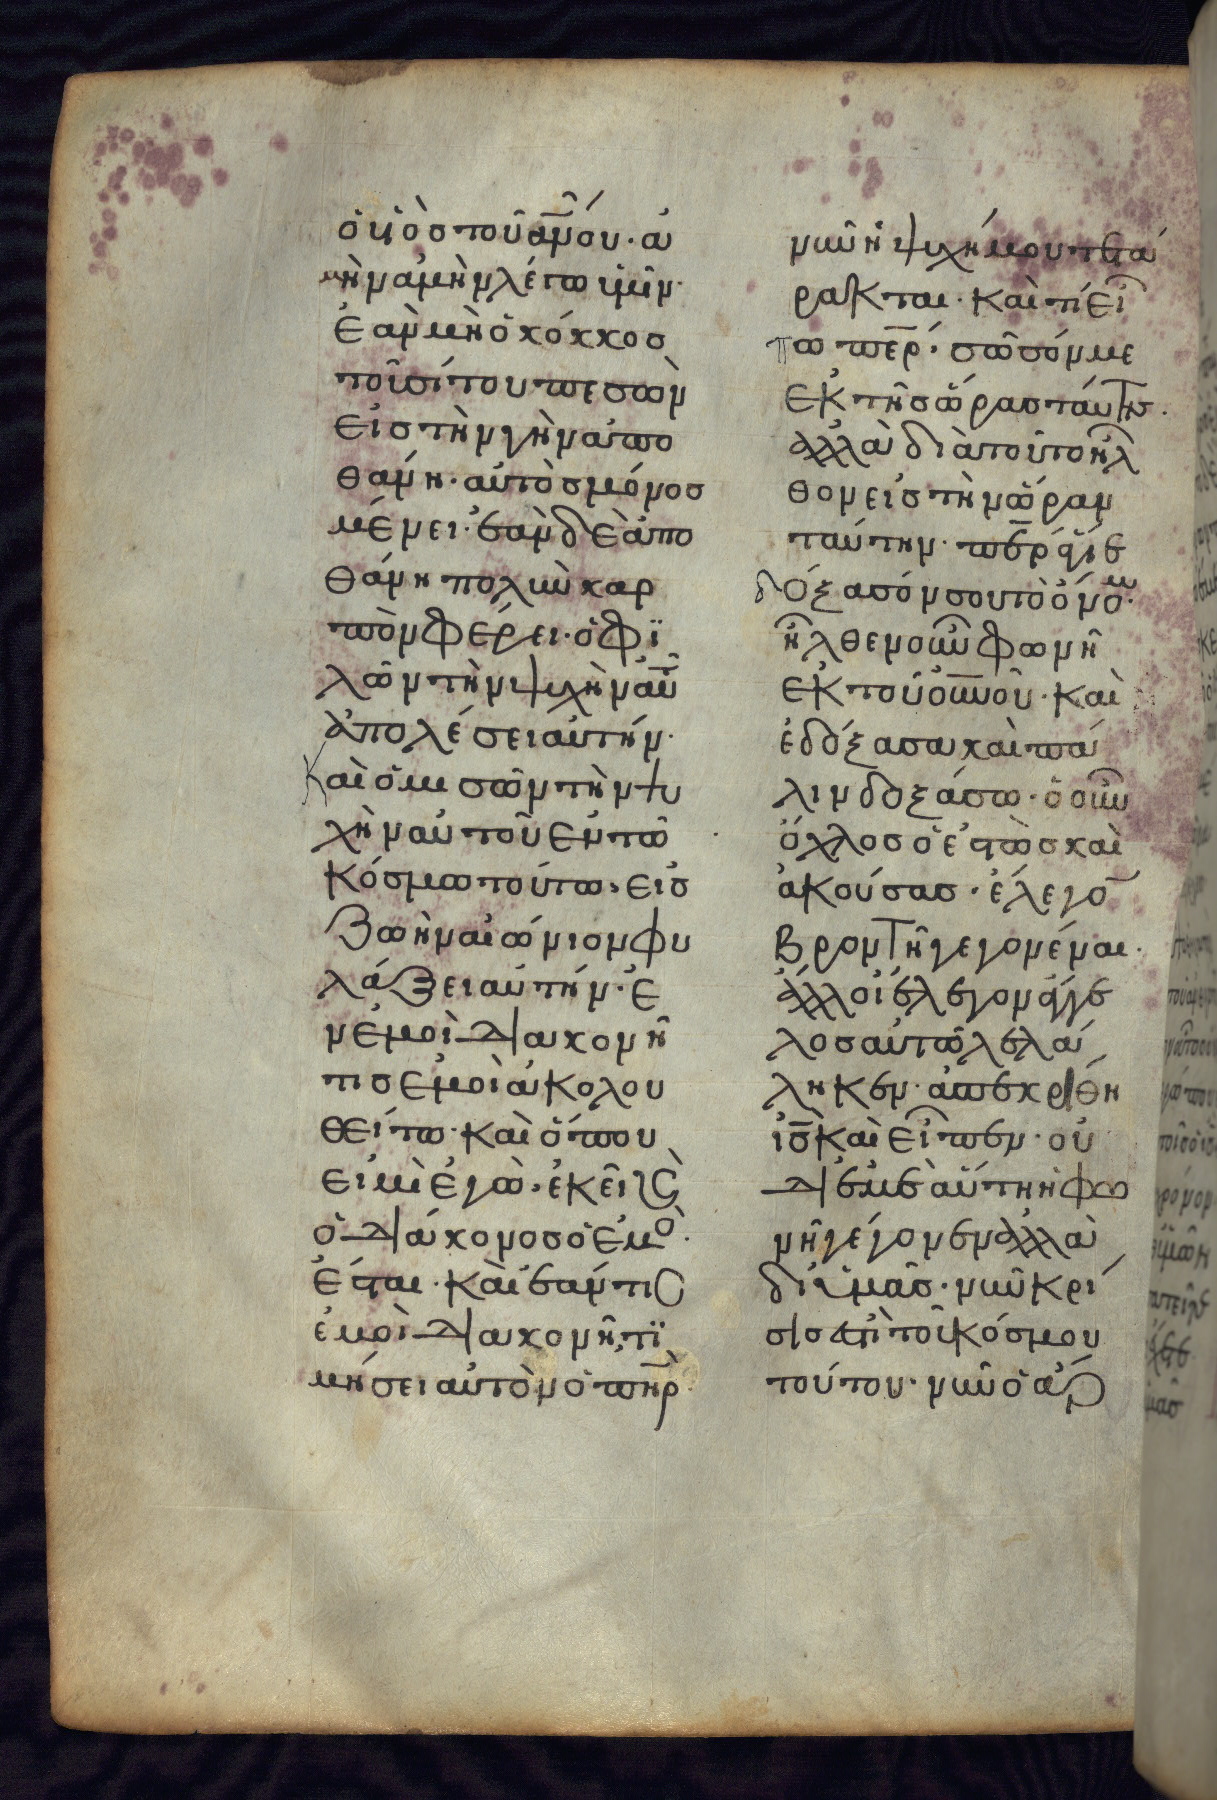 ὁ υἱὸς τοῦ ἀν̅ου· ἀ
μὴν ἀμὴν λέγω ὑμῖν·
ἐὰν μὴ ὁ κόκκος
τοῦ σίτου πεσὼν
εἰς τὴν γῆν ἀπο
θάνῃ· αὐτὸς μόνος
μένει· ἐὰν δὲ ἀπο
θάνῃ πολὺν καρ
πὸν φέρει· ὁ φϊ
λῶν τὴν ψυχὴν αὐτοῦ
ἀπολέσει αὐτήν·
Καὶ ὁ μισῶν τὴν ψυ
χὴν αὐτοῦ ἐν τῶ
κόσμω τούτω· εἰς
ζωὴν αἰώνιον φυ
λάξει αὐτήν· ἐ
ὰν ἐμοὶ διακονῇ
τις ἐμοὶ ἀκολου
θείτω· καὶ ὅπου
εἰμὶ ἐγὼ· ἐκεῖ καὶ
ὁ διάκονος ὁ ἐμὸς
ἔσται· καὶ ἐάν τις
ἐμοὶ διακονῇ τϊ
μήσει αὐτὸν ὁ πη̅ρ·
νῦν ἡ ψυχή μου τετά
ρακται· καὶ τί εἴ
πω πε̅ρ· σῶσόν με
ἐκ τῆς ὥρας ταύτης·
ἀλλὰ διὰ τοῦτο ἦλ
θον εἰς τὴν ὥραν
ταύτην· πε̅ρ ἅγιε
δόξασόν σου τὸ ὄνομα·
ἦλθεν οὖν φωνὴ
ἐκ τοῦ οὐ̅νοῦ· καὶ
ἐδόξασα καὶ πά
λιν δοξάσω· ὁ οὖν
ὄχλος ὁ ἑστὼς καὶ
ἀκούσας· ἔλεγο̅
βροντὴν γεγονέναι·
ἄλλοι ἔλεγον ἄγγε
λος αὐτῶ λελά
ληκεν· ἀπεκρίθη
ι̅ς̅ καὶ εἶπεν· οὐ
δι' ἐμὲ αὕτη ἡ φω
νὴ γέγονεν ἀλλὰ
δι' ὑμᾶς· νῦν κρί
σις ἐστὶ τοῦ κόσμου
τούτου· νῦν ὁ ἄρ